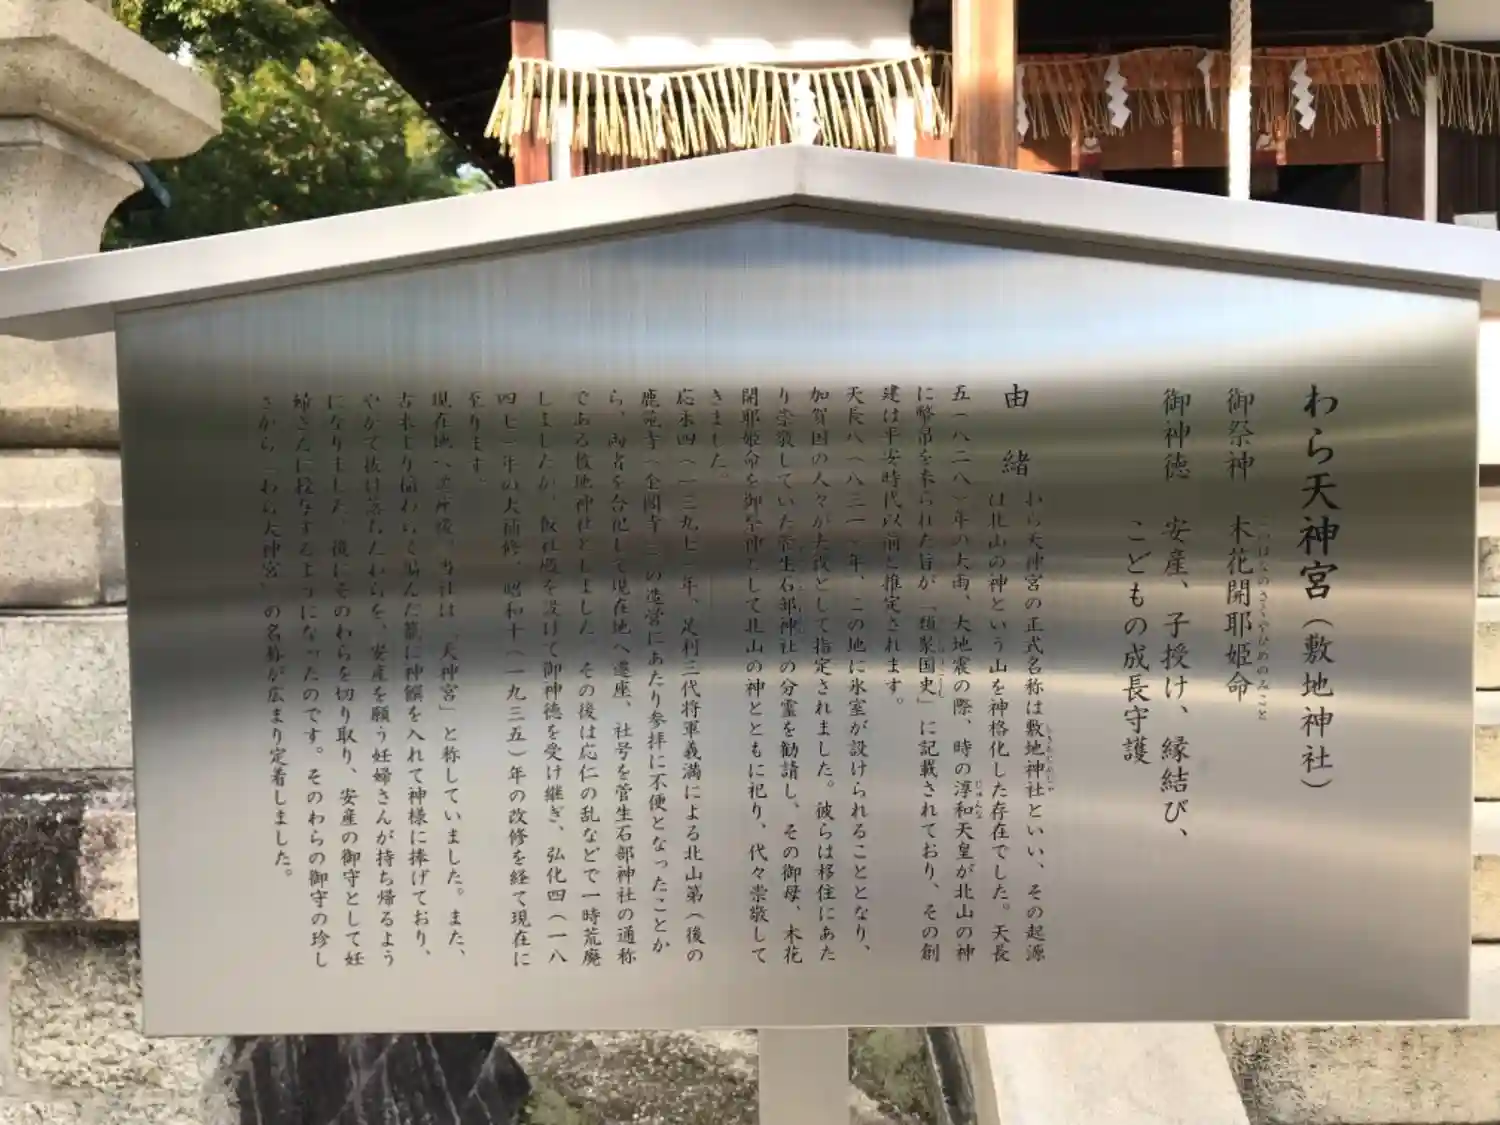 わら天神宮(敷地神社)
御祭神 木花開耶姫命
このはなのさくやひめのみこと
御神徳 安産、子授け、縁結び、
こどもの成長守護
由緒
わら天神宮の正式名称は敷地神社といい、その起源
しきちじんじゃ
は北山の神という山を神格化した存在でした。天長
五(八二八)年の大雨、大地震の際、時の淳和天皇が北山の神
じゅんな
に幣帛を奉られた旨が「類聚国史」に記載されており、その創
建は平安時代以前と推定されます。
天長八(八三一)年、この地に氷室が設けられることとなり、
加賀国の人々が夫役として指定されました。彼らは移住にあた
り崇敬していた菅生石部神社の分霊を勧請し、その御母、木花
開耶姫命を御祭神として北山の神とともに祀り、代々崇敬して
きました。
応永四(一三九七)年、足利三代将軍義満による北山第(後の
鹿苑寺(金閣寺))の造営にあたり参拝に不便となったことか
ら、両者を合祀して現在地へ遷座、社号を菅生石部神社の通称
である敷地神社としました。その後は応仁の乱などで一時荒廃
しましたが、仮社殿を設けて御神徳を受け継ぎ、弘化四(一八
四七)年の大補修、昭和十(一九三五)年の改修を経て現在に
至ります。
現在地へ遷座後、当社は「天神宮」と称していました。また、
古来より稲わらで編んだ籠に神饌を入れて神様に捧げており、
やがて抜け落ちたわらを、安産を願う妊婦さんが持ち帰るよう
になりました。後にそのわらを切り取り、安産の御守として妊
婦さんに授与するようになったのです。そのわらの御守の珍し
さから「わら天神宮」の名称が広まり定着しました。